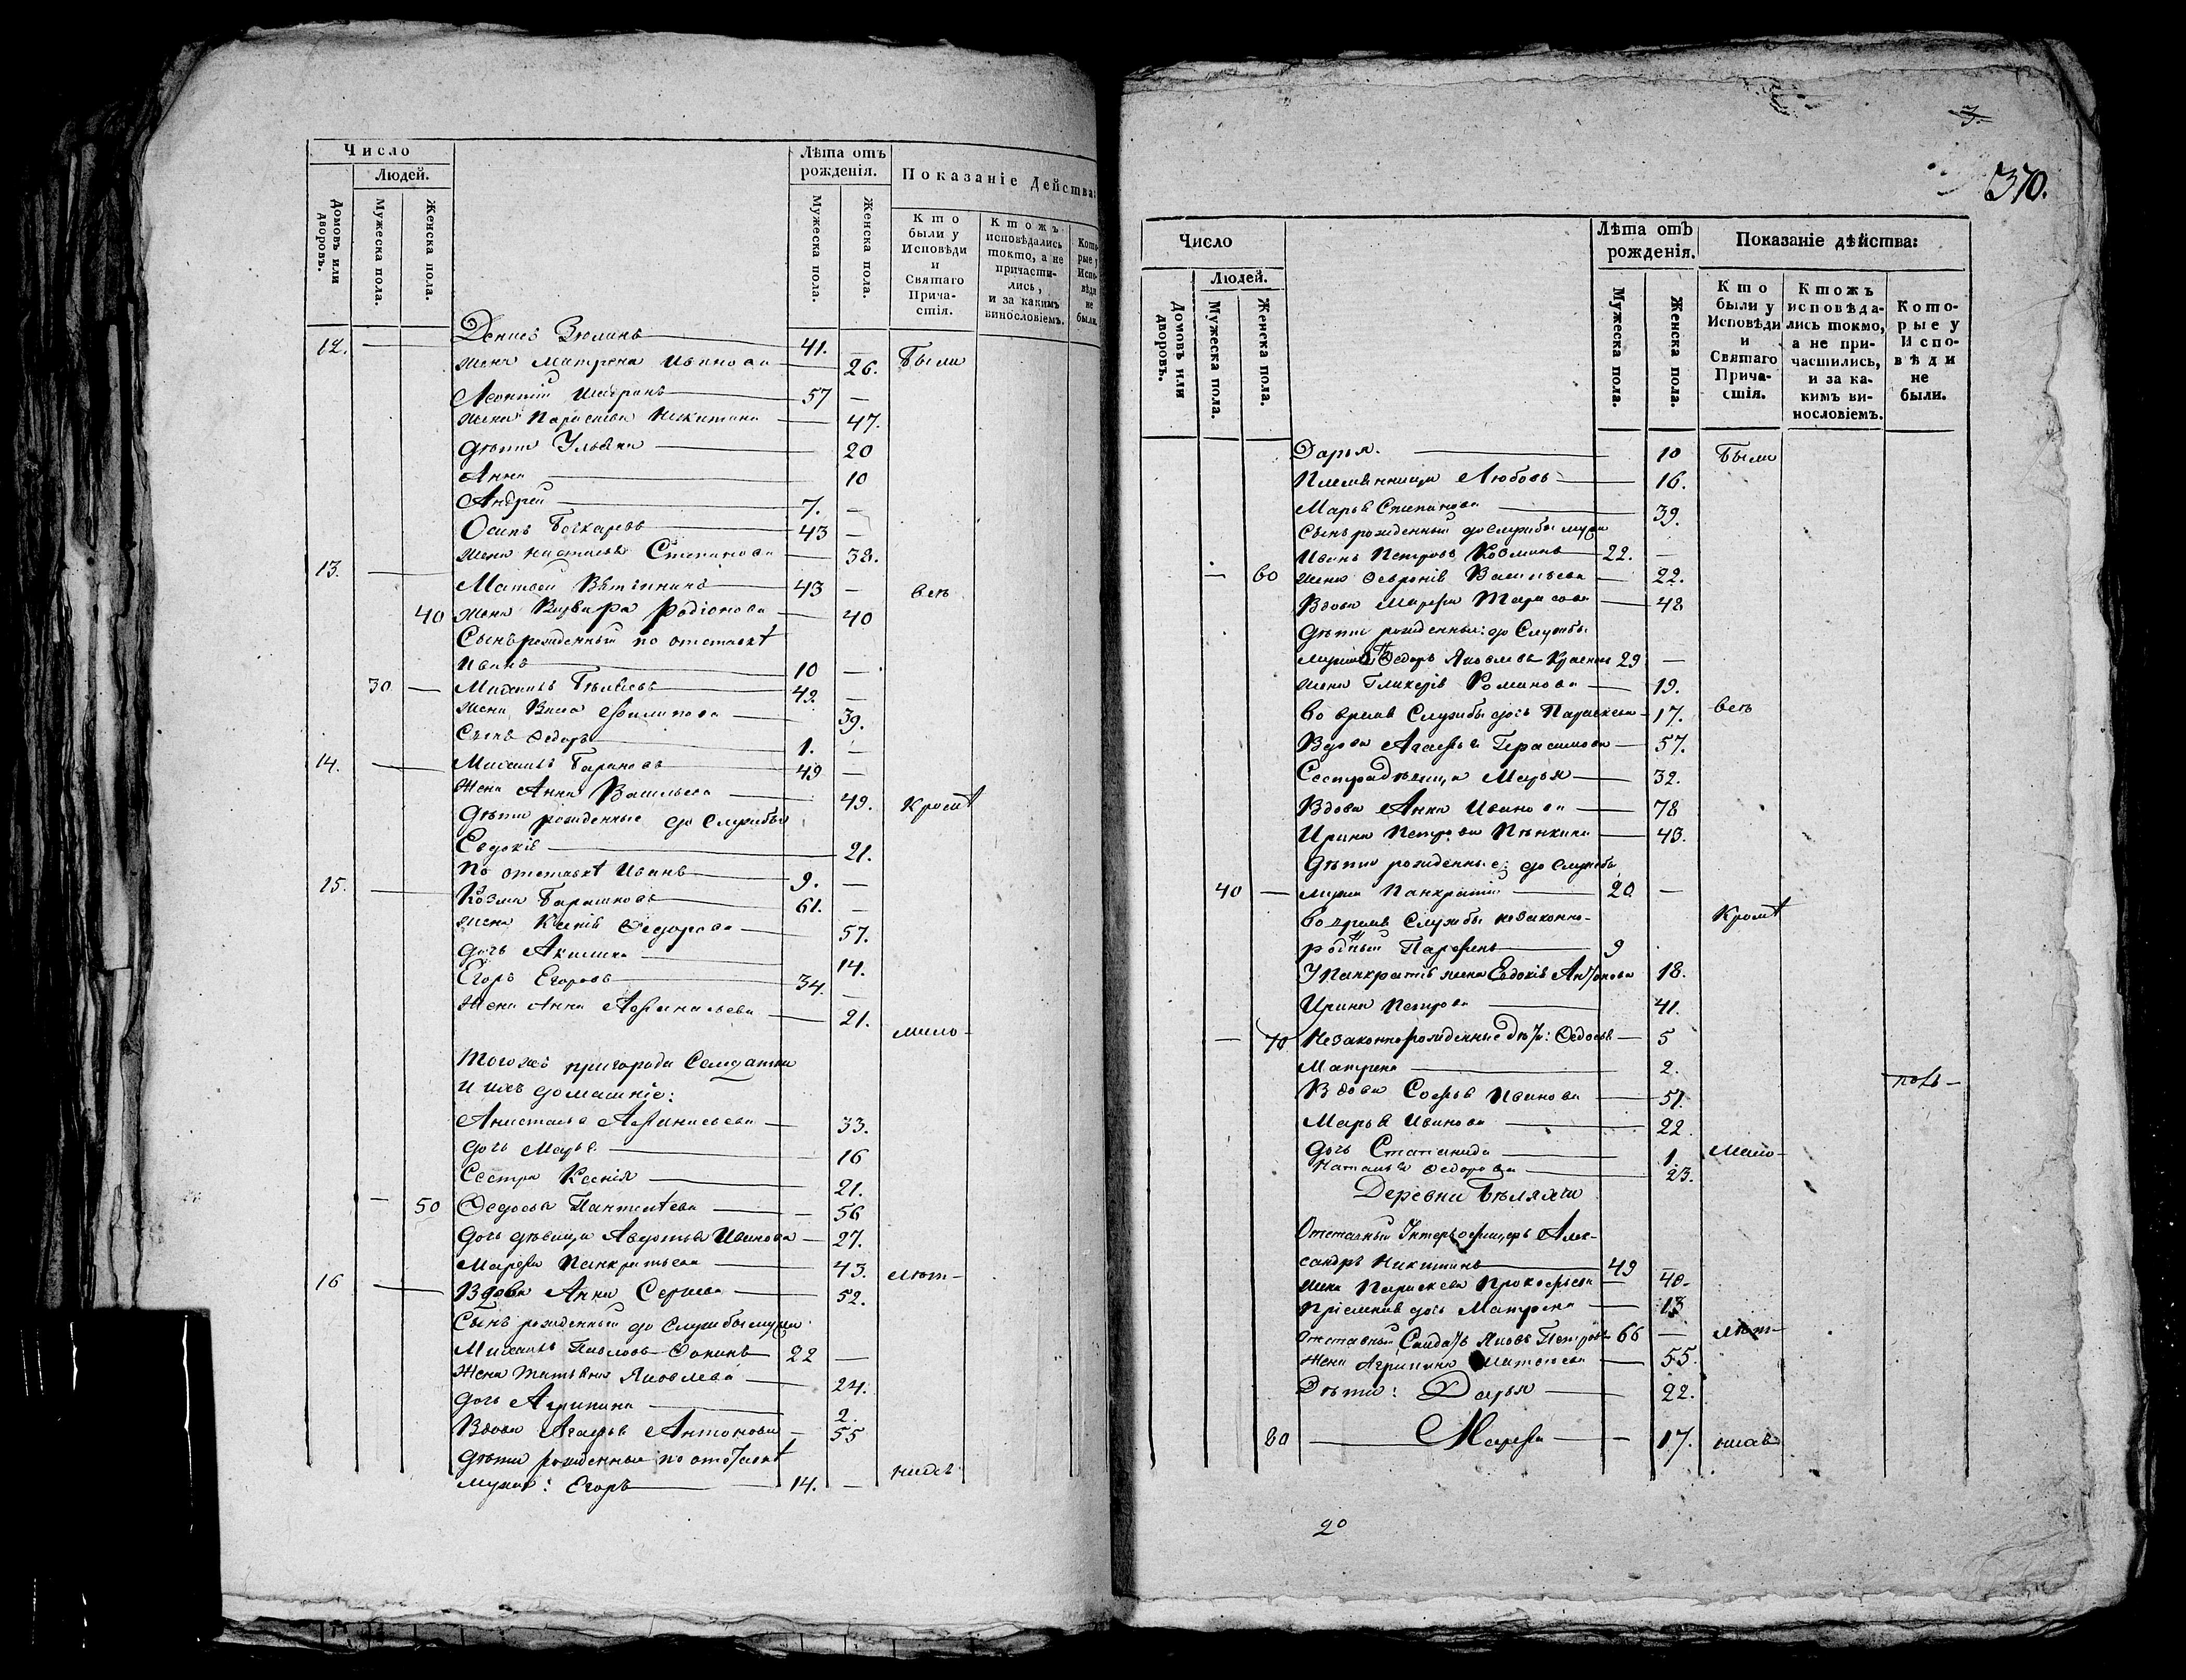 Число
Людей.
Домовъ или дворовъ.
Мужеска пола.
Женска пола.
Лѣта отъ рожденія.
Мужеска пола.
Женска пола.
Показаніе Действа:
Кто были у Исповѣди и Святаго Причастія.
Ктожъ исповѣдались токмо, а не причастились, и за какимъ винословіемъ.
Которые у Исповѣди не были.
12. Денис Зюлинъ 41. —
жена Матрена Иванова 26. Были
Леонтий Шабранъ 57 —
жена Параскева Никитина 47.
дѣти Ульяна 20
Анна 10
Андрей 7. —
Осипъ Бочкаревъ 43 —
жена Настасья Степанова 38.
13. Матвей 43 — всѣ
40 жена Родіонова 40
Сынъ рожденный по отставкѣ
Иванъ 10 —
30 — Михаилъ Бѣляевъ 42. —
жена Васа Филипова 39.
Сынъ Ѳедоръ 1. —
14. Михаилъ Барановъ 49 —
жена Анна Васильева 49. Кромѣ
дѣти рожденные до Службы
Евдокія 21.
По отставкѣ Иванъ 9. —
15. Козма Барашковъ 61. —
жена Ксенія Ѳедорова 57.
дочь Акилина 14.
Егоръ Егоровъ 34. —
жена Анна Афанасьева 21.
мало-
Того жъ пригорода Салдатки
и ихъ домашніе:
Анастасья Афанасьева 33.
дочь Марья 16
Сестра Ксенія 21.
— 50 Ѳедосья Пантелѣева 56
дочь дѣвица Авдотья Иванова 27.
Марфа Панкратьева 43. лѣт-
16 Вдова Анна Сергиева 52.
Сынъ рожденный до Службы мужа
Михаилъ Павловъ Ѳокинъ 22 —
жена Татьяна Яковлева 24.
дочь Агрипина 2.
Вдова Агафья Антонова 55
дѣти рожденные по отставкѣ
мужа: Егоръ 14. — нихъ
370.
Число
Людей.
Домовъ или дворовъ.
Мужеска пола.
Женска пола.
Лѣта отъ рожденія.
Мужеска пола.
Женска пола.
Показаніе дѣйства:
Кто были у Исповѣди и Святаго Причастія.
Ктожъ исповѣдались токмо, а не причастились, и за какимъ винословіемъ.
Которые у Исповѣди не были.
Дарья. 10 Были
Племянница Любовь 16.
Марья Степанова 39.
Сынъ рожденный до Службы мужа
Иванъ Петровъ Козминъ 22. —
— 60 жена Ѳевронія Васильева 22.
Вдова Марфа Тарасова 48
дѣти рожденные: до Службы
мужа Ѳедоръ Яковлевъ 29 —
жена Гликерія Романова 19.
во время Службы дочь Параскева 17. всѣ
Вдова Агафья Герасимова 57.
Сестра дѣвица Марья 32.
Вдова Анна Иванова 78
Ирина Петрова Пѣнкина 43.
дѣти рожденные: до Службы
40 — мужа Панкратий 20 —
во время Службы незаконно- Кромѣ
родный Парфенъ 9
У Панкратія жена Евдокія Антонова 18.
Ирина Петрова 41.
— 70 Незаконнорожденные дѣти: Ѳедосья 5
Матрена 2.
Вдова Софья Иванова 51.
Марья Иванова 22.
дочь Степанида 1. мало-
Наталья Ѳедорова 23.
Деревни Бѣляхчи
Отставный Унтеръофицеръ Алек-
сандръ Никитинъ 49 —
жена Параскева Прокофьева 40.
Пріемная дочь Матрена 13
Отставный Салдатъ Яковъ Петровъ 66 — лѣт-
жена Агрипина Матвеева 55.
Дѣти: Дарья 22.
80 Марфа 17.
20